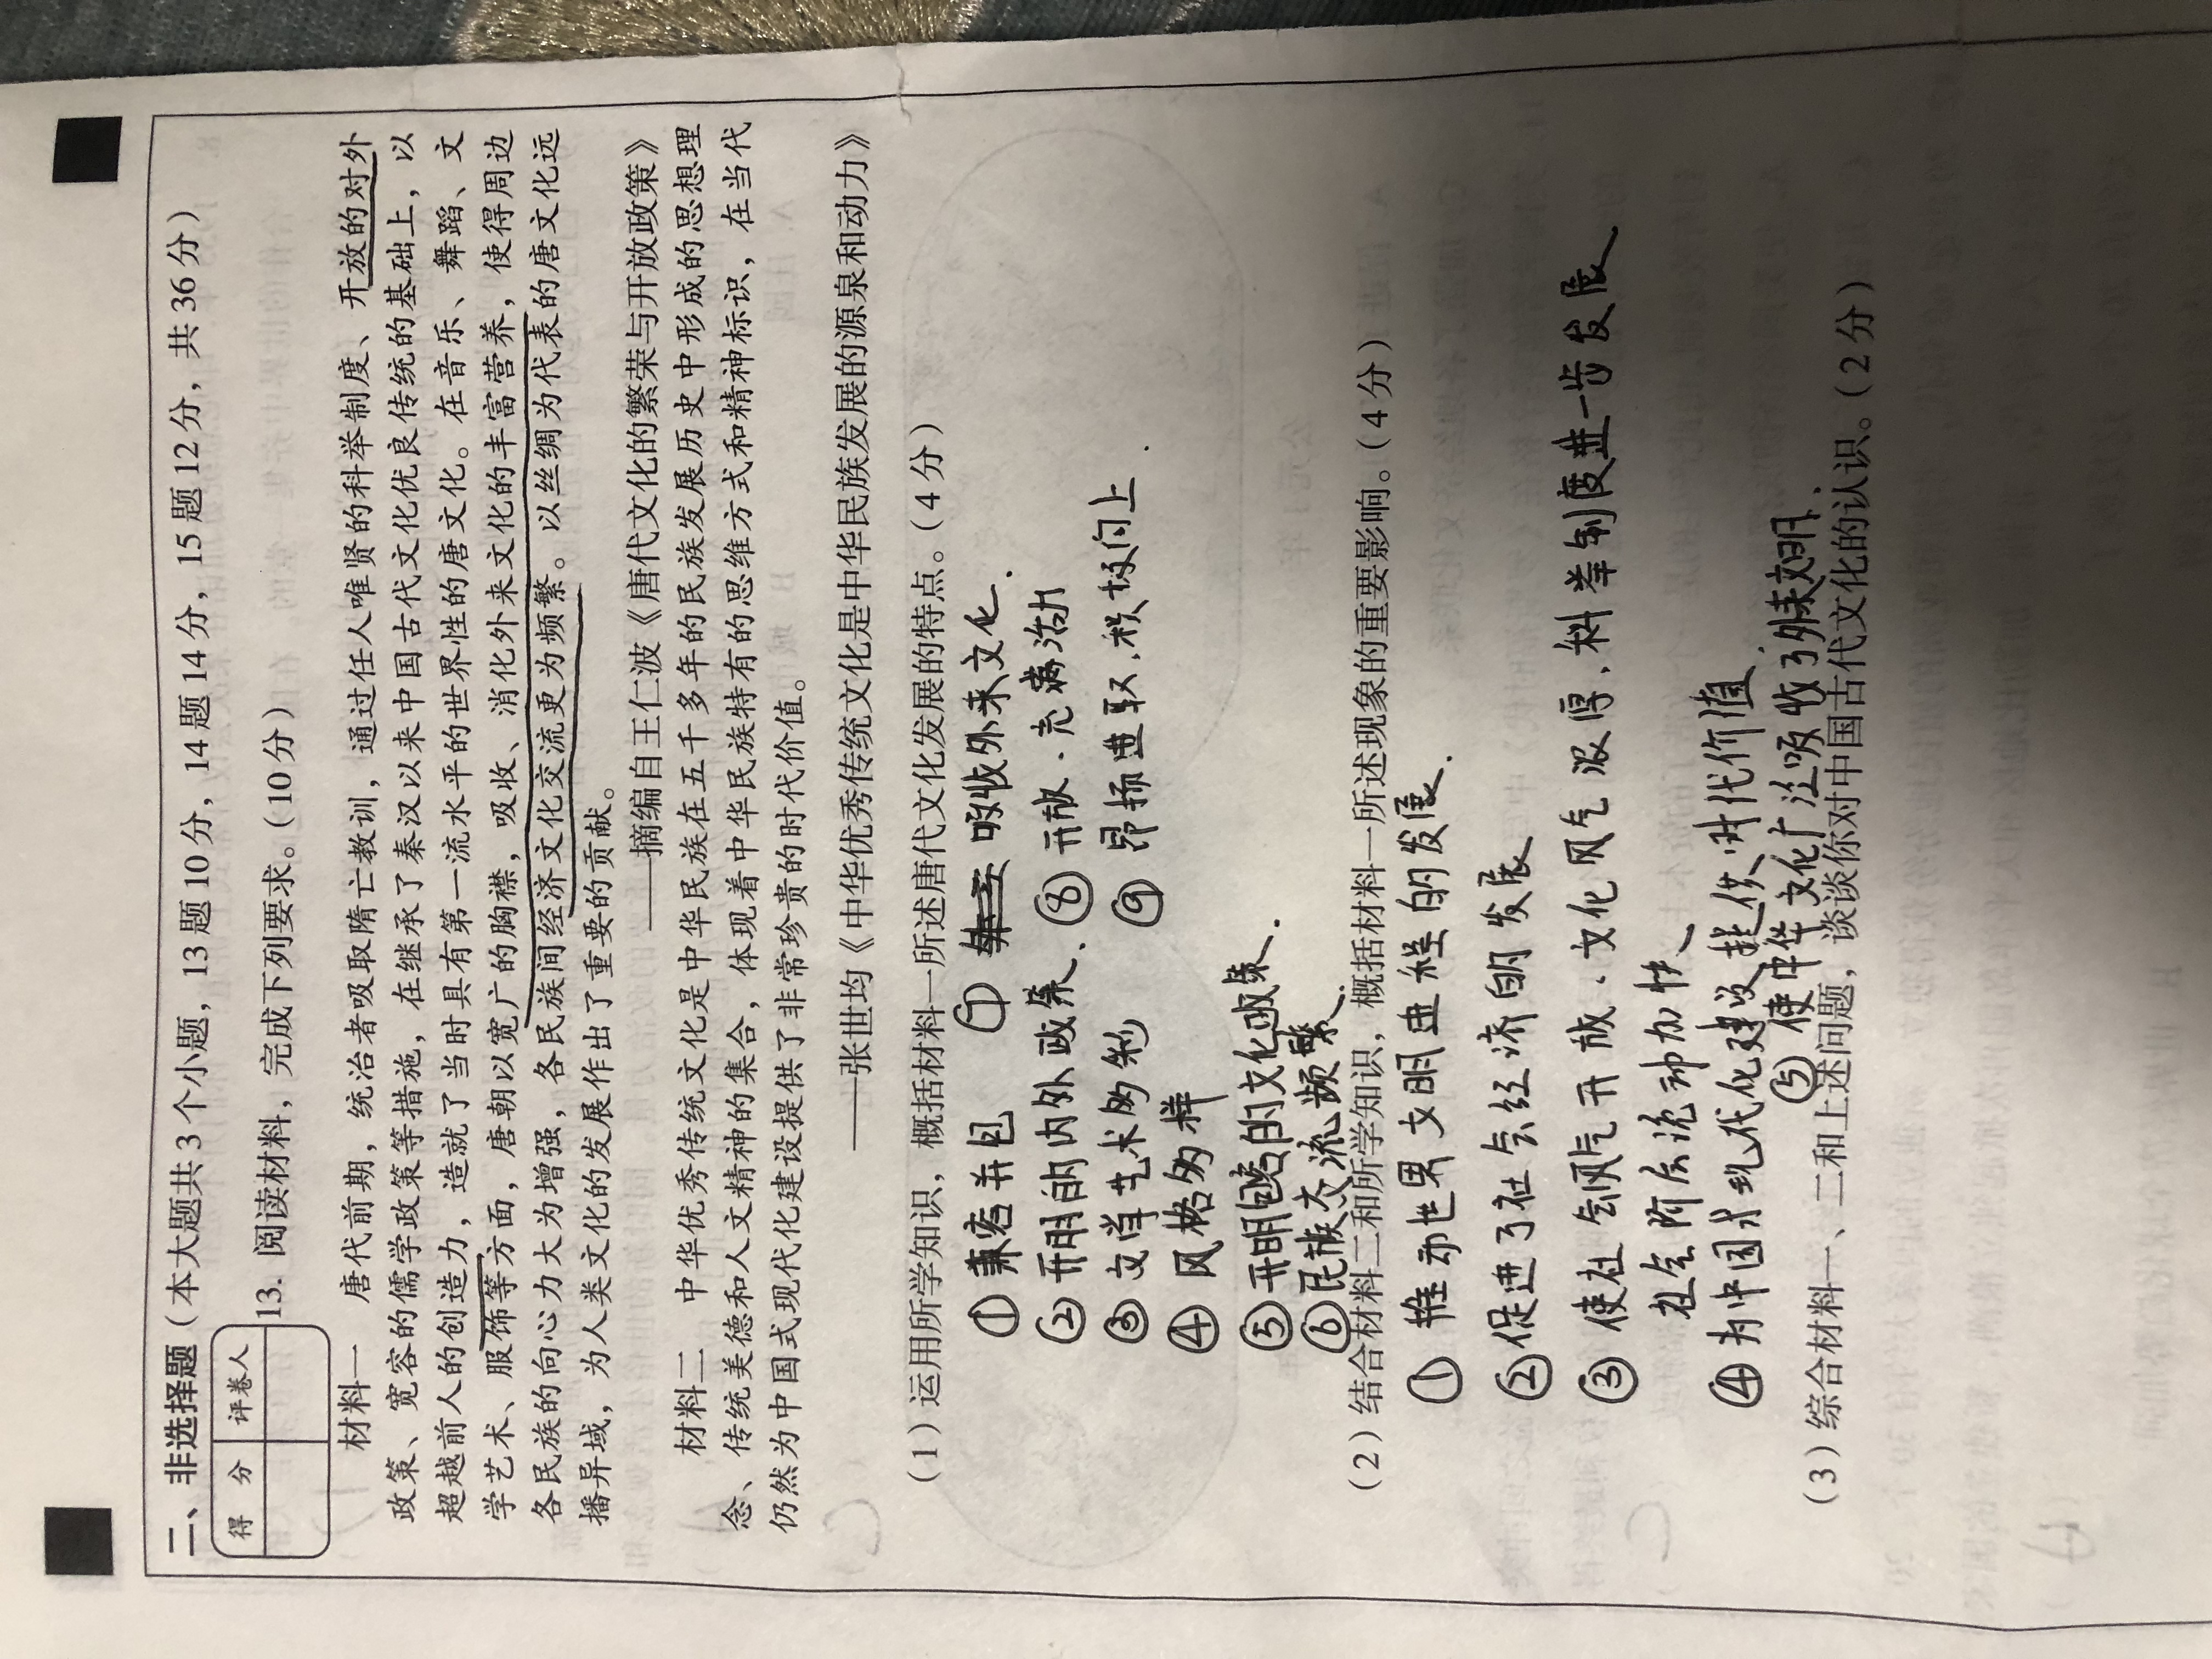 二、非选择题（本大题共3个小题，13题10分，14题14分，15题12分，共36分）
得 分 评卷人
13. 阅读材料，完成下列要求。（10分）
材料一 唐代前期，统治者吸取隋亡教训，通过任人唯贤的科举制度、开放的对外
政策、宽容的儒学政策等措施，在继承了秦汉以来中国古代文化优良传统的基础上，以
超越前人的创造力，造就了当时具有第一流水平的世界性的唐文化。在音乐、舞蹈、文
学艺术、服饰等方面，唐朝以宽广的胸襟，吸收、消化外来文化的丰富营养，使得周边
各民族的向心力大为增强，各民族间经济文化交流更为频繁。以丝绸为代表的唐文化远
播异域，为人类文化的发展作出了重要的贡献。
——摘编自王仁波《唐代文化的繁荣与开放政策》
材料二 中华优秀传统文化是中华民族在五千多年的民族发展历史中形成的思想理
念、传统美德和人文精神的集合，体现着中华民族特有的思维方式和精神标识，在当代
仍然为中国式现代化建设提供了非常珍贵的时代价值。
——张世均《中华优秀传统文化是中华民族发展的源泉和动力》
（1）运用所学知识，概括材料一所述唐代文化发展的特点。（4分）
①兼容并包 ⑦ 吸收外来文化.
②开明的内外政策、 ⑧开放.充满活力
③文学艺术多彩 ⑨昂扬进取.积极向上.
④风格多样
⑤开明包容的文化政策.
⑥民族交流频繁.
（2）结合材料二和所学知识，概括材料一所述现象的重要影响。（4分）
①推动世界文明进程的发展.
②促进了社会经济的发展
③使社会风气开放.文化风气浓厚.科举制度进一步发展.
社会阶层流动加快
④为中国式现代化建设提供时代价值.
⑤使中华文化广泛吸收了外来文明.
（3）综合材料一、二和上述问题，谈谈你对中国古代文化的认识。（2分）